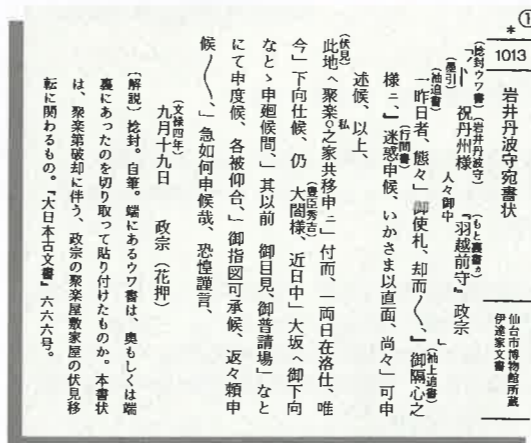 1013 岩井丹波守宛書状 仙台市博物館所蔵 伊達家文書
(捻封ウワ書)(岩井丹波守) (もと裏書カ)
「〆 祝丹州様 人々御中 『羽越前守』政宗 」
(墨引)
(袖追書) (行間書) (袖上追書)
一昨日者、態々」御使札、却而〱、」御隔心之
様ニ、』迷惑申候、いかさま以直面、尚々」可申
述候、以上、
(伏見) 私
此地へ聚楽○之家共移申ニ」付而、一両日在洛仕、唯
(豊臣秀吉)
今」下向仕候、仍 大閤様、近日中」大坂へ御下向
なとゝ申廻候間、」其以前 御目見、御普請場」なと
にて申度候、各被仰合、」御指図可承候、返々頼申
候〱、」急如何申候哉、恐惶謹言、
(文禄四年)
九月十九日 政宗(花押)
〔解説〕捻封。自筆。端にあるウワ書は、奥もしくは端
裏にあったのを切り取って貼り付けたものか。本書状
は、聚楽第破却に伴う、政宗の聚楽屋敷家屋の伏見移
転に関わるもの。『大日本古文書』六六六号。